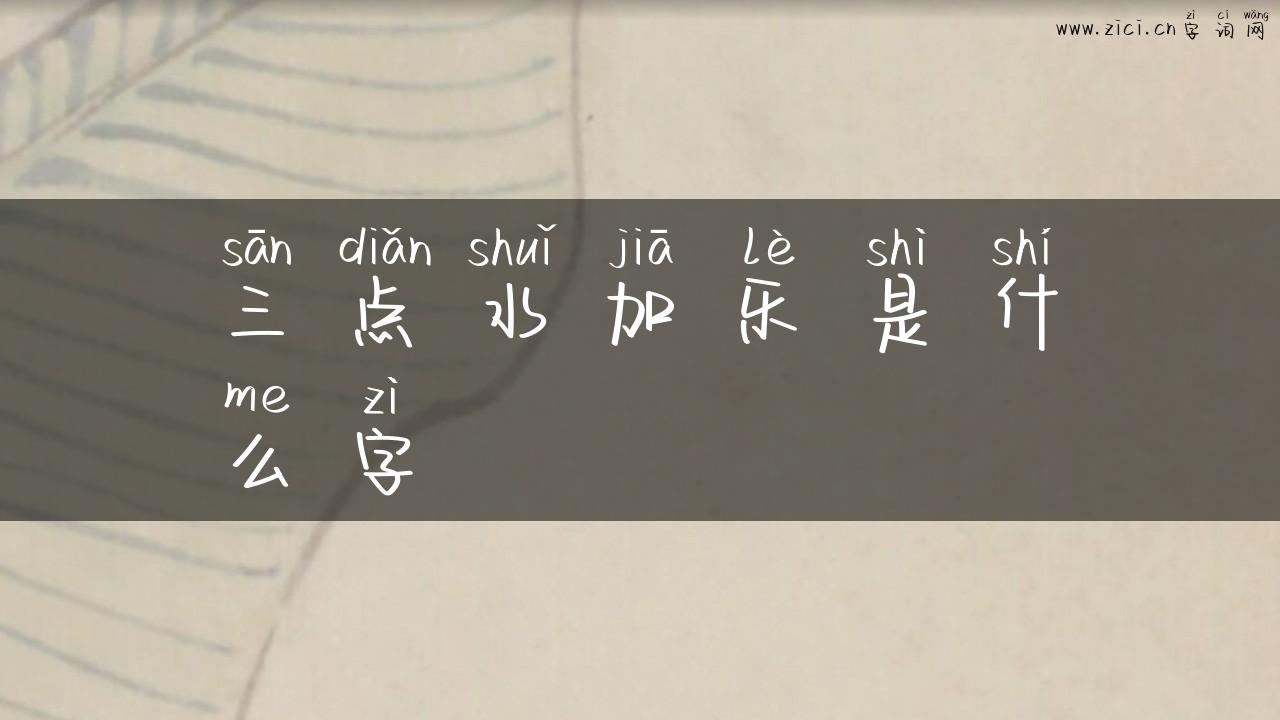 zì cí wǎng
www.zici.cn 字 词 网
sān diǎn shuǐ jiā lè shì shí
三 点 水 加 乐 是 什
me zì
么 字